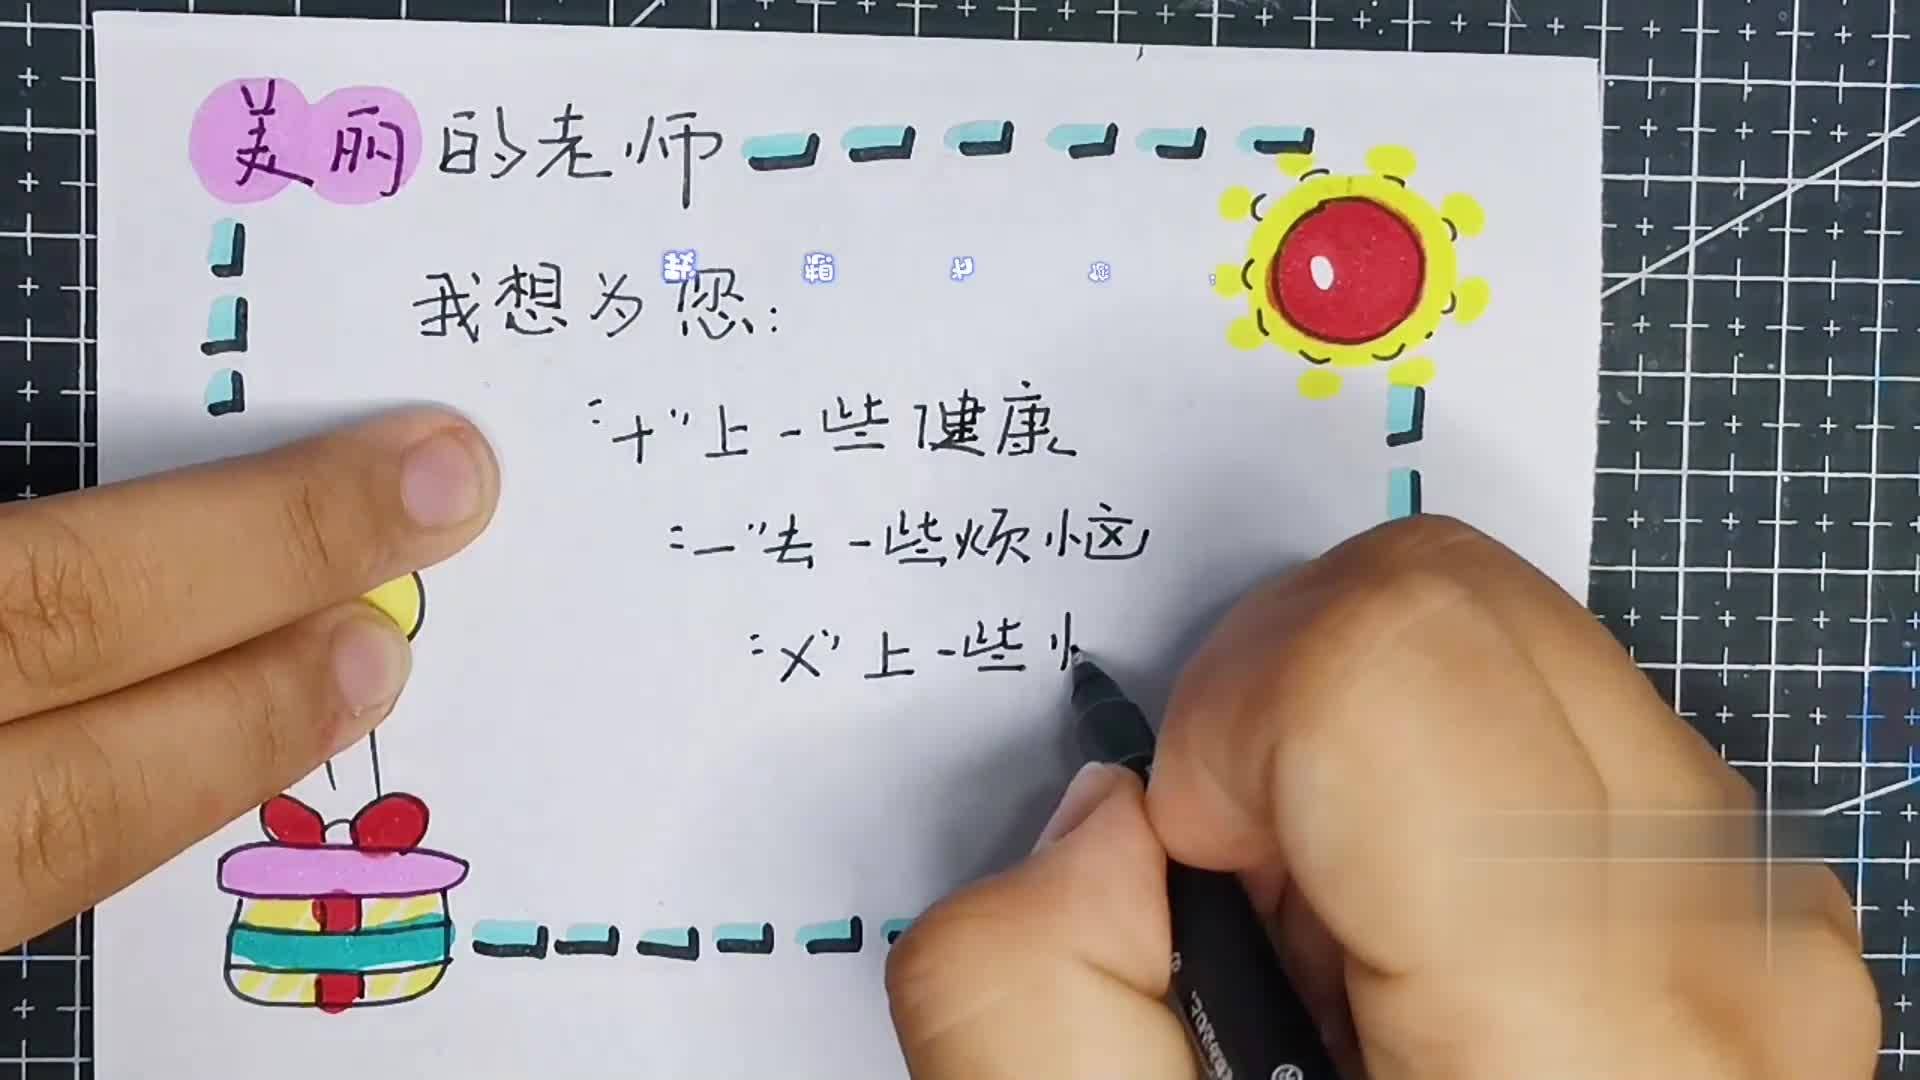 美丽的老师
我想为您:
"+"上一些健康
"一"去一些烦恼
"x"上一些忄